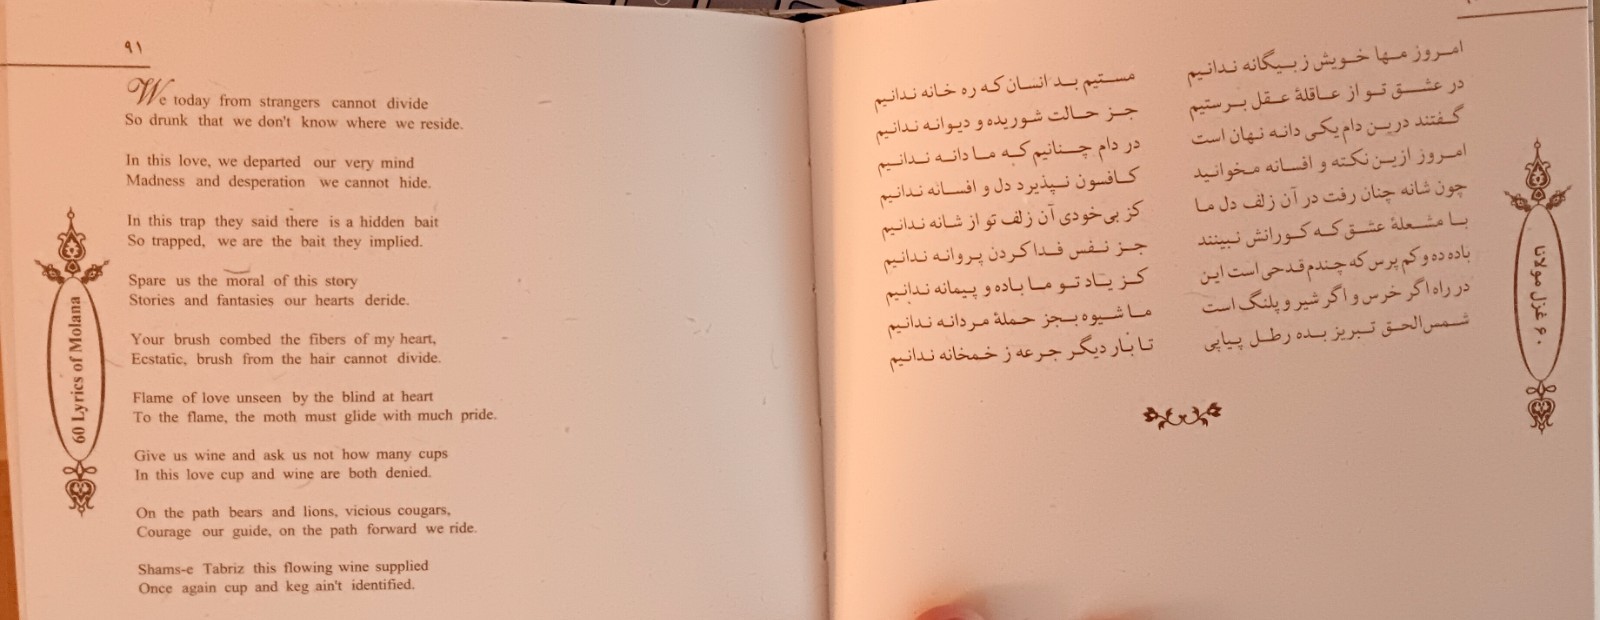 ۹۱
We today from strangers cannot divide
So drunk that we don't know where we reside.
In this love, we departed our very mind
Madness and desperation we cannot hide.
In this trap they said there is a hidden bait
So trapped, we are the bait they implied.
Spare us the moral of this story
Stories and fantasies our hearts deride.
Your brush combed the fibers of my heart,
Ecstatic, brush from the hair cannot divide.
Flame of love unseen by the blind at heart
To the flame, the moth must glide with much pride.
Give us wine and ask us not how many cups
In this love cup and wine are both denied.
On the path bears and lions, vicious cougars,
Courage our guide, on the path forward we ride.
Shams-e Tabriz this flowing wine supplied
Once again cup and keg ain't identified.
60 Lyrics of Molana
امروز مها خویش ز بیگانه ندانیم
مستیم بد انسان که ره خانه ندانیم
در عشق تو از عاقلهٔ عقل برستیم
جز حالت شوریده و دیوانه ندانیم
گفتند درین دام یکی دانه نهان است
در دام چنانیم که ما دانه ندانیم
امروز ازین نکته و افسانه مخوانید
کافسون نپذیرد دل و افسانه ندانیم
چون شانه چنان رفت در آن زلف دل ما
کز بی‌خودی آن زلف تو از شانه ندانیم
با مشعلهٔ عشق که کورانش نبینند
جز نفس فدا کردن پروانه ندانیم
باده ده و کم پرس که چندم قدحی است این
کز یاد تو ما باده و پیمانه ندانیم
در راه اگر خرس و اگر شیر و پلنگ است
ما شیوه بجز حملهٔ مردانه ندانیم
شمس‌الحق تبریز بده رطل پیاپی
تا بار دیگر جرعه ز خمخانه ندانیم
۶۰ غزل مولانا